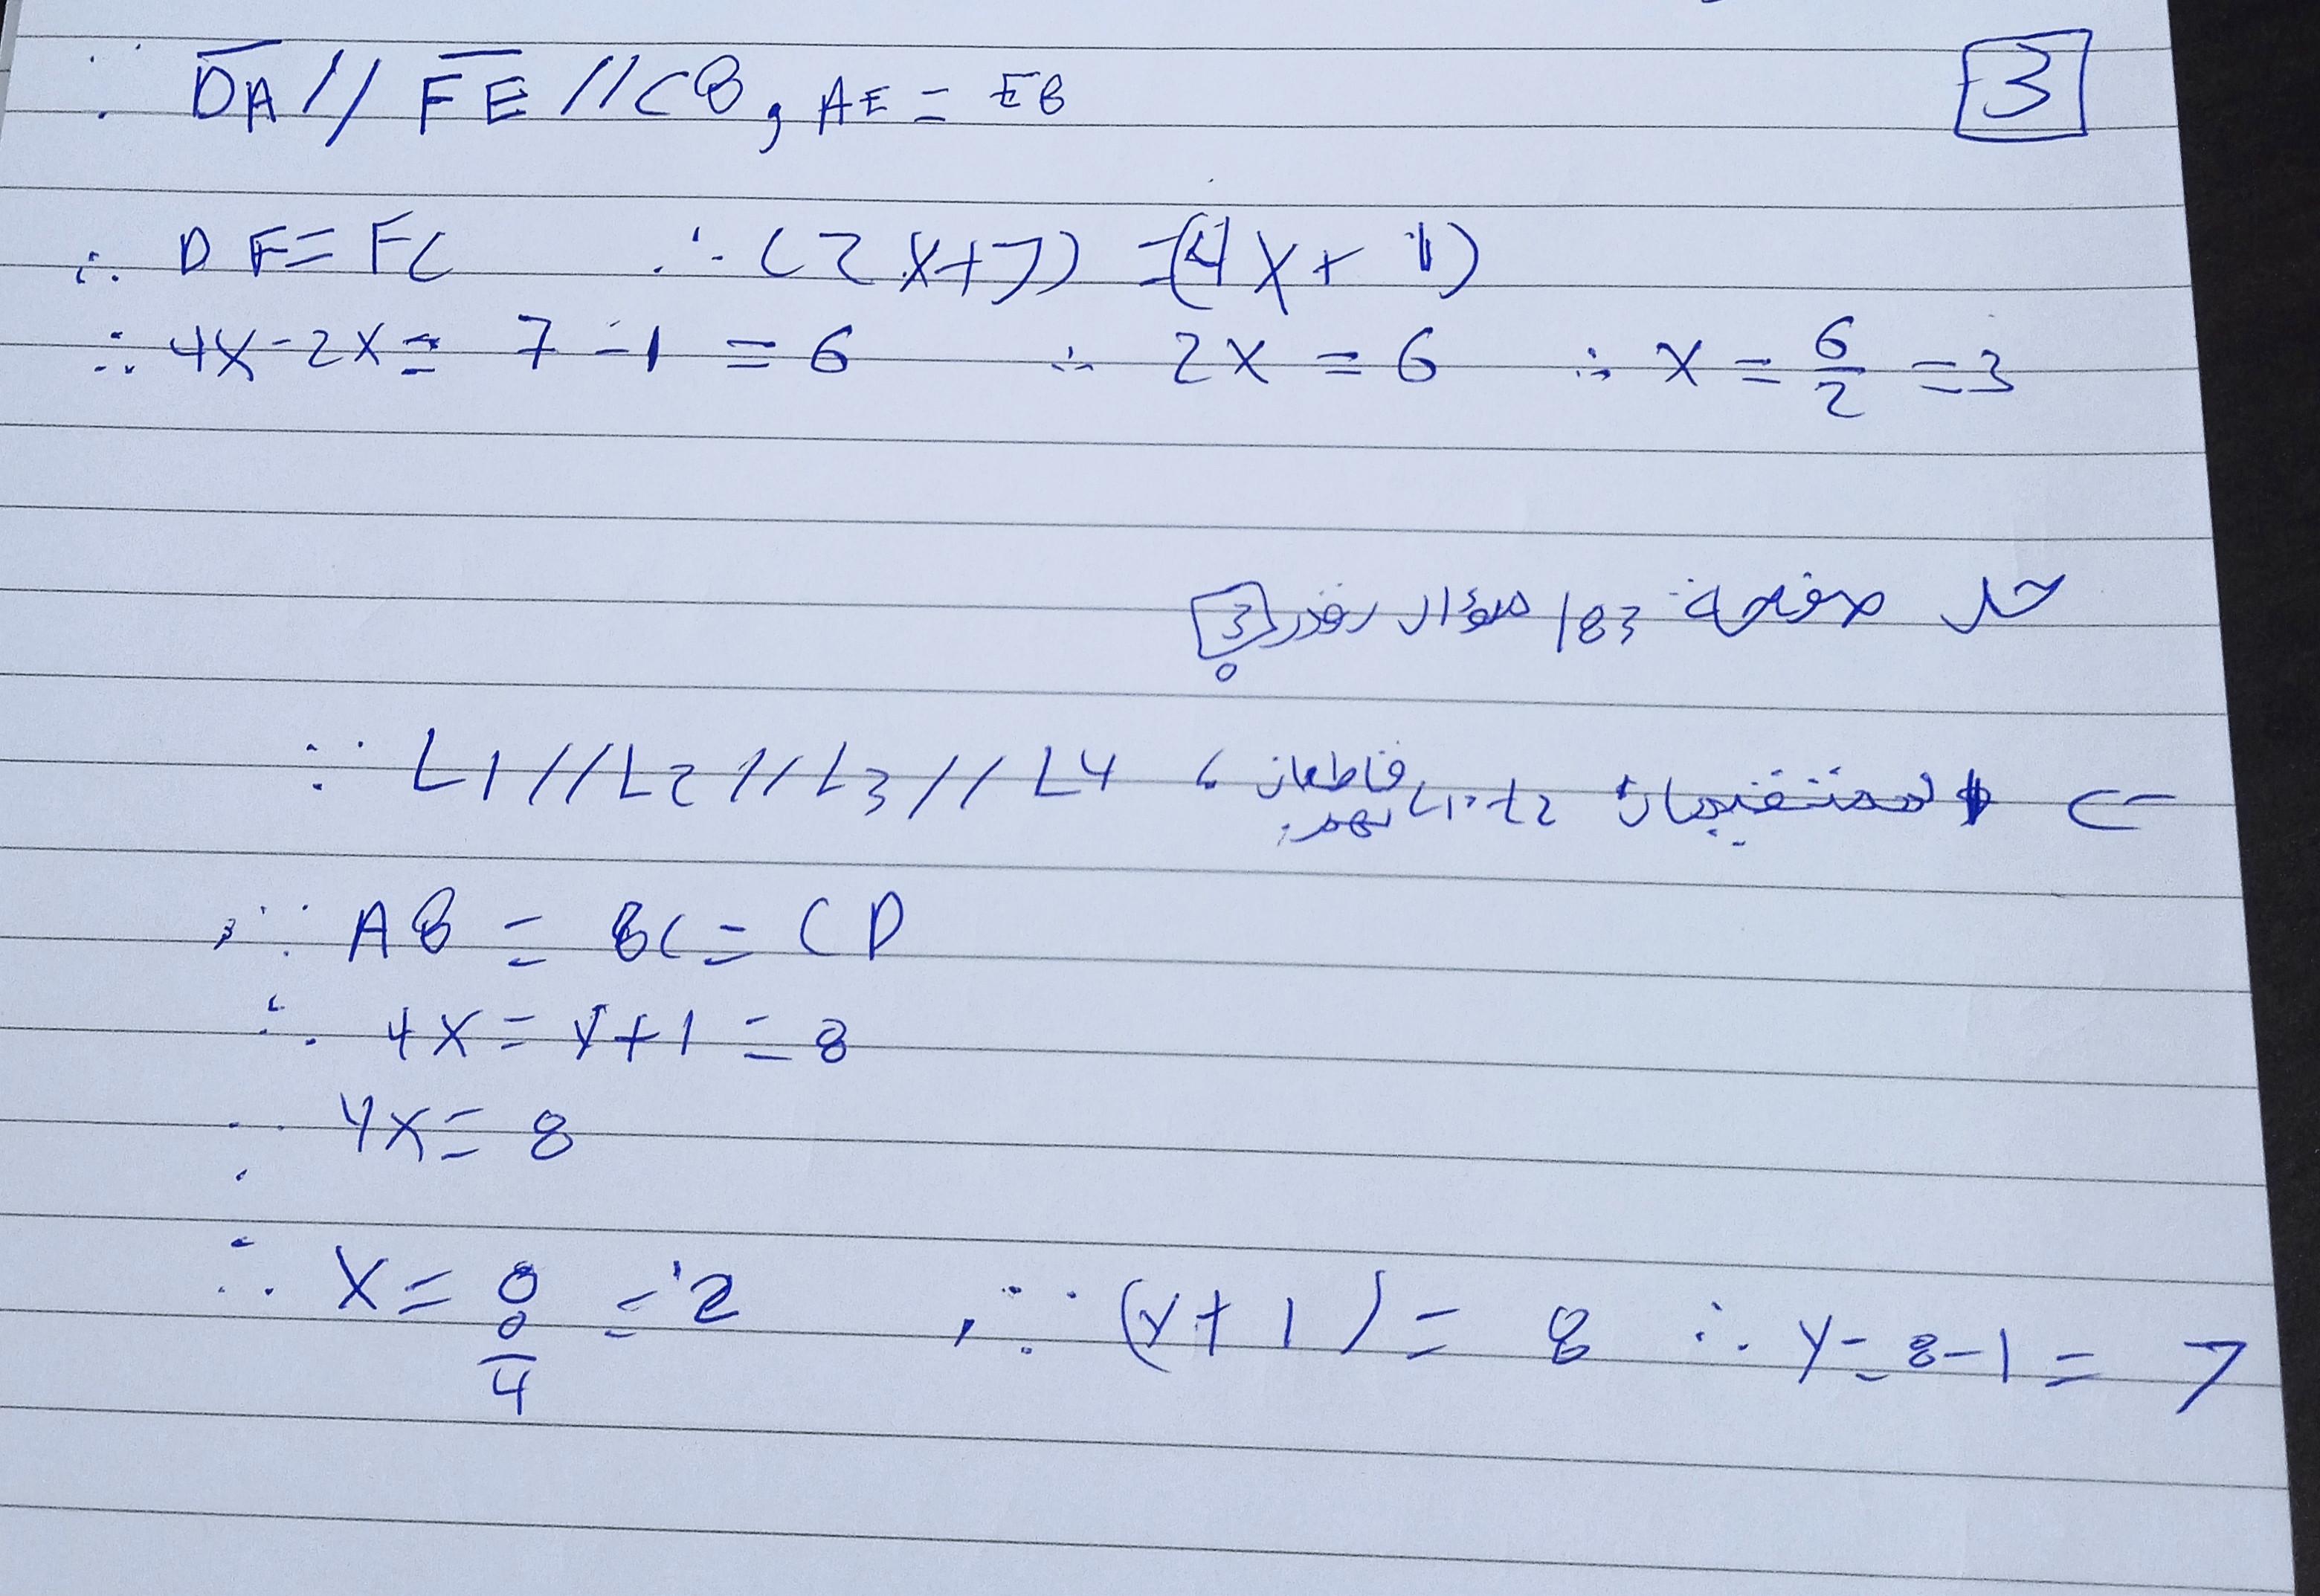 ∵ DA // FE // CB , AE = EB
3
∴ DF = FC ∴ (2X+7) = (4X+1)
∴ 4X - 2X = 7 - 1 = 6 ∴ 2X = 6 ∴ X = 6/2 = 3
حل صفحة 183 سؤال رقم 3
∵ L1 // L2 // L3 // L4 ، قاطعان لهم المستقيمان
, ∵ AB = BC = CD
∴ 4X = Y+1 = 8
∵ 4X = 8
∴ X = 8/4 = 2 , ∵ (Y+1) = 8 ∴ Y = 8-1 = 7